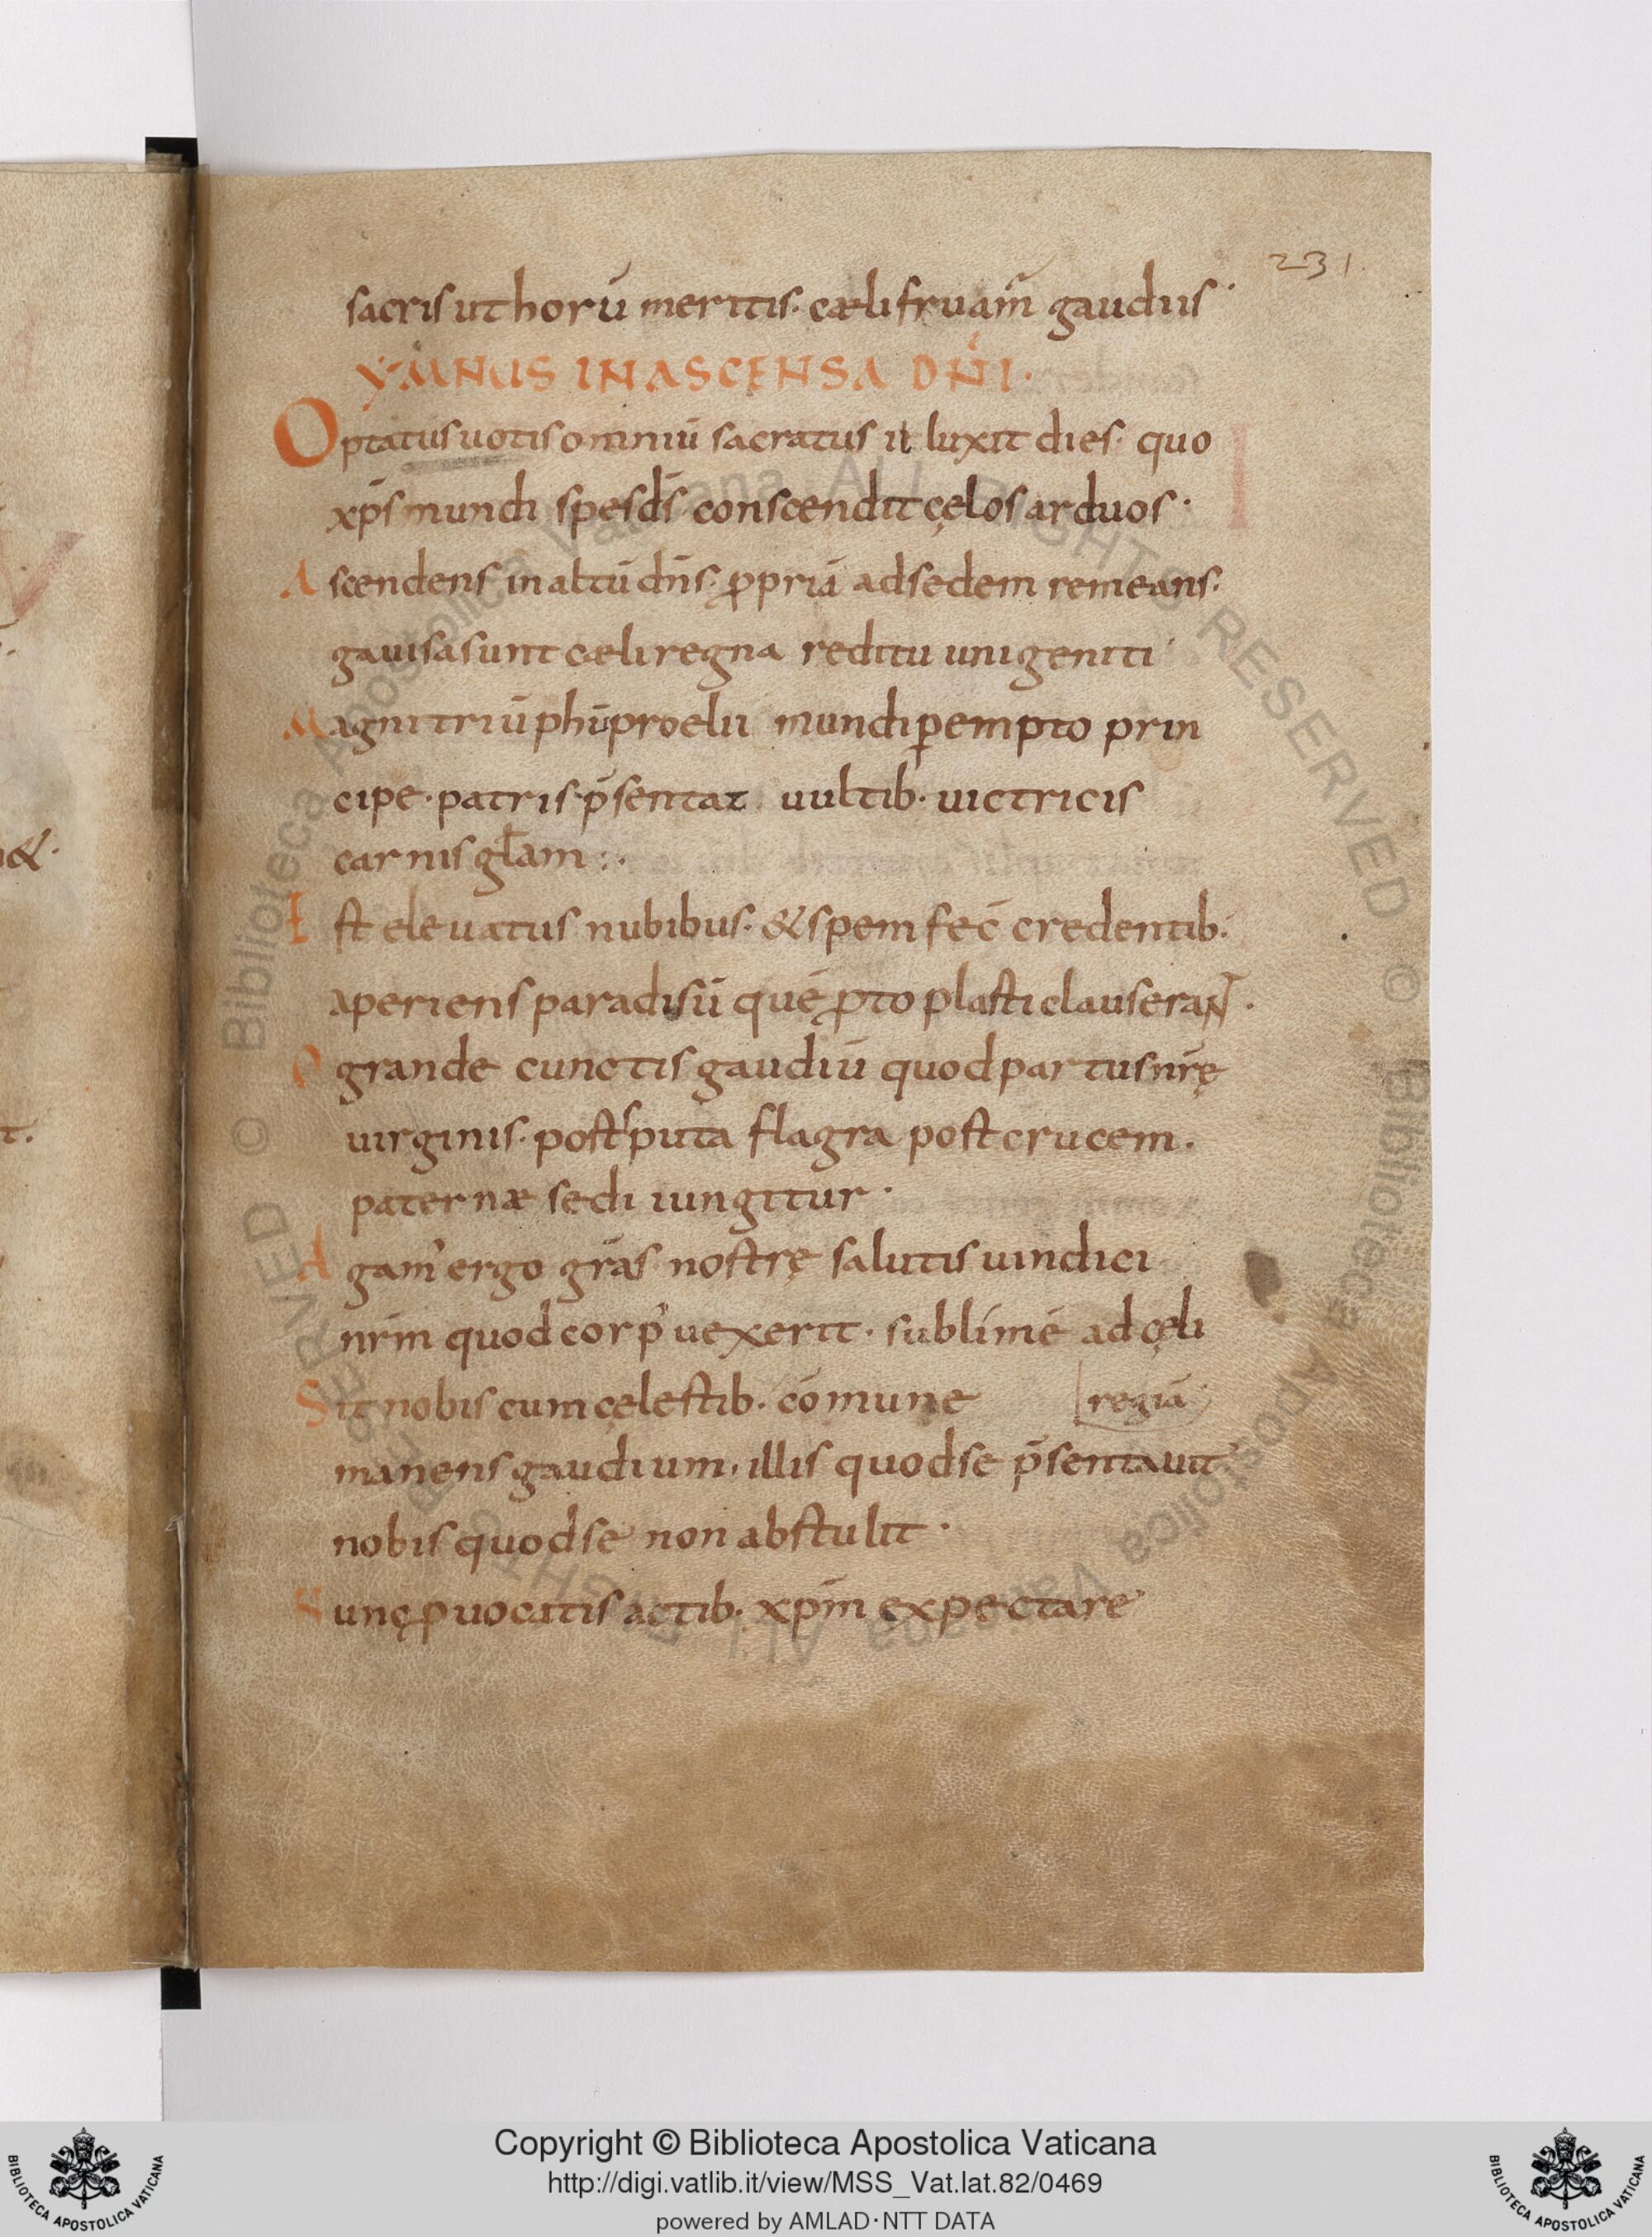 231.
sacris ut horū meritis. cæli fruam̄ gaudiis.
YMNUS IN ASCENSA DN̄I.
Optatus uotis omniū sacratus il luxit dies. quo
xp̄s mundi spes ds̄ conscendit cęlos arduos.
Ascendens in altū dn̄s. ꝓpriā ad sedem remeans.
gauisa sunt cæli regna reditu unigeniti
Magni triūphū proelii mundi ꝑempto prin
cipe. patris p̄sentat uultib. uictricis
carnis gl̄am:.
Est eleuatus nubibus. & spem fec̄ credentib.
aperiens paradisū quē ꝓtoplasti clauserant.
O grande cunctis gaudiū quod partus nr̄ę
uirginis. post sputa flagra post crucem.
paternæ sedi iungitur.
Agam' ergo grās nostrę salutis uindici
nr̄m quod corp' uexerit. sublimē ad cęli
Sit nobis cum cęlestib. cōmune regiā
manens gaudium. illis quod se p̄sentauit
nobis quod se non abstulit.
Nunc ꝓuocatis actib. xp̄m expectare
© Biblioteca Apostolica Vaticana ALL RIGHTS RESERVED © Biblioteca Apostolica Vaticana ALL RIGHTS RESERVED
Copyright © Biblioteca Apostolica Vaticana
http://digi.vatlib.it/view/MSS_Vat.lat.82/0469
powered by AMLAD·NTT DATA
BIBLIOTECA APOSTOLICA VATICANA
BIBLIOTECA APOSTOLICA VATICANA